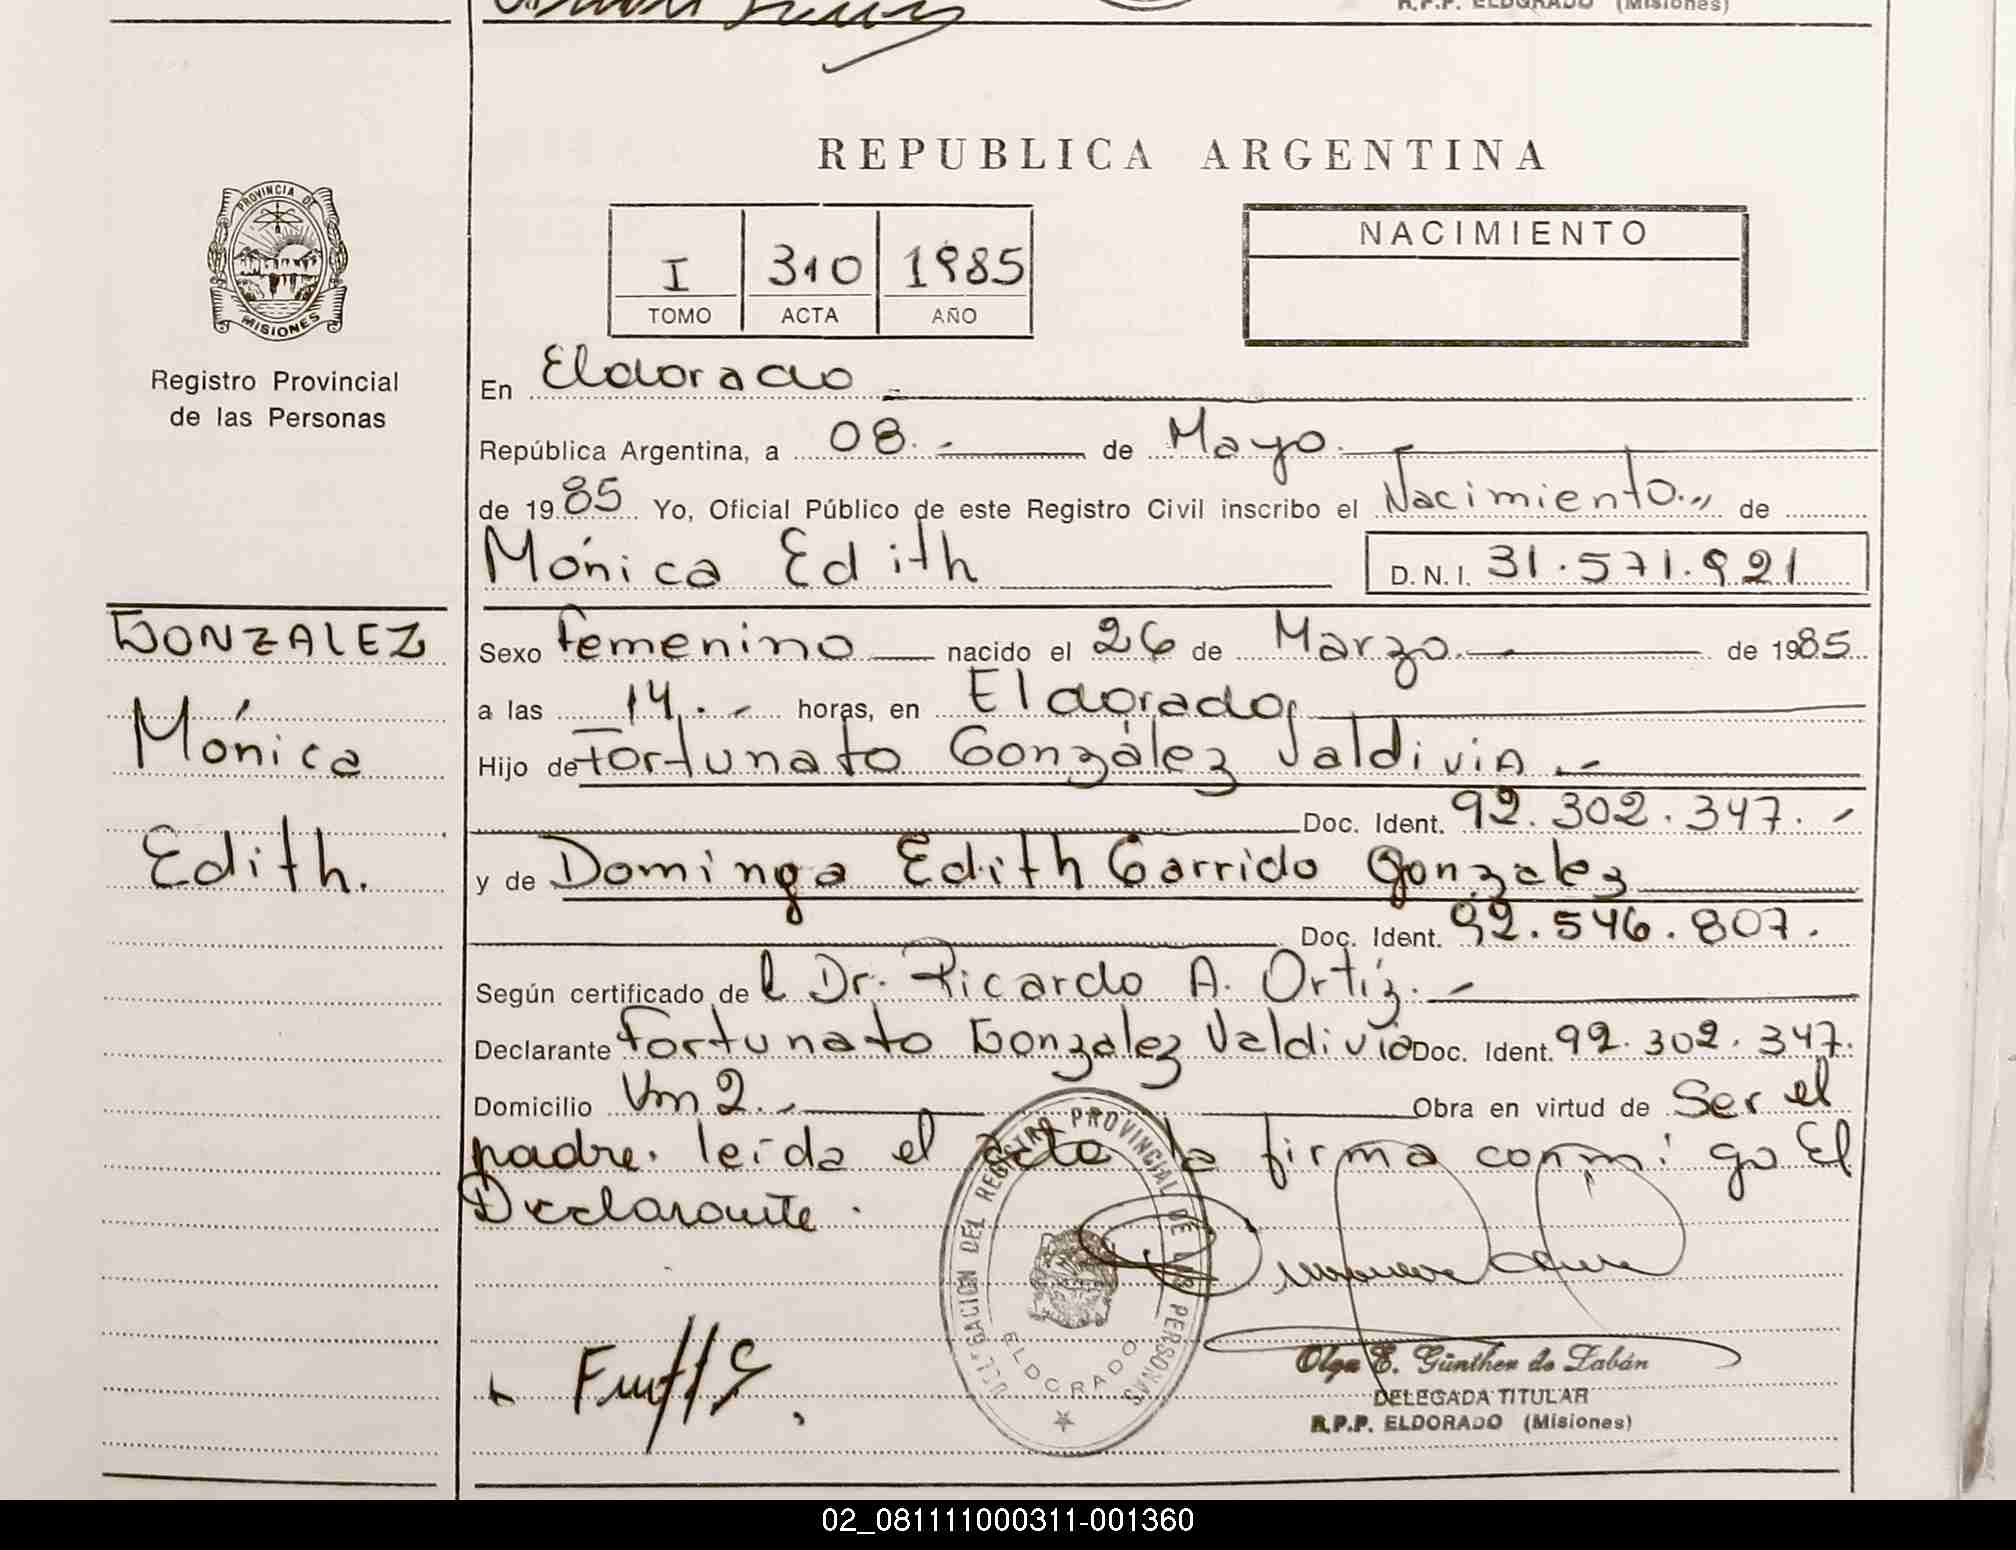 R.P.P. ELDORADO (Misiones)
REPUBLICA ARGENTINA
PROVINCIA DE
MISIONES
Registro Provincial
de las Personas
I 310 1985
TOMO ACTA AÑO
NACIMIENTO
En Eldorado
República Argentina, a 08.- de Mayo.
de 1985 Yo, Oficial Público de este Registro Civil inscribo el Nacimiento.,, de
Mónica Edith D.N.I. 31.571.921
GONZALEZ
Mónica
Edith.
Sexo Femenino nacido el 26 de Marzo. de 1985
a las 14.- horas, en Eldorado
Hijo de Fortunato González Valdivia.-
Doc. Ident. 92.302.347.-
y de Dominga Edith Garrido Gonzalez
Doc. Ident. 92.546.807.
Según certificado de l Dr. Ricardo A. Ortíz.-
Declarante Fortunato Gonzalez Valdivia Doc. Ident. 92.302.347.
Domicilio Km 2.- Obra en virtud de Ser el
padre. leída el acta la firma conmigo El
Declarante.
DELEGACION DEL REGISTRO PROVINCIAL DE LAS PERSONAS
ELDORADO
Olga E. Günther de Zabán
DELEGADA TITULAR
R.P.P. ELDORADO (Misiones)
02_081111000311-001360